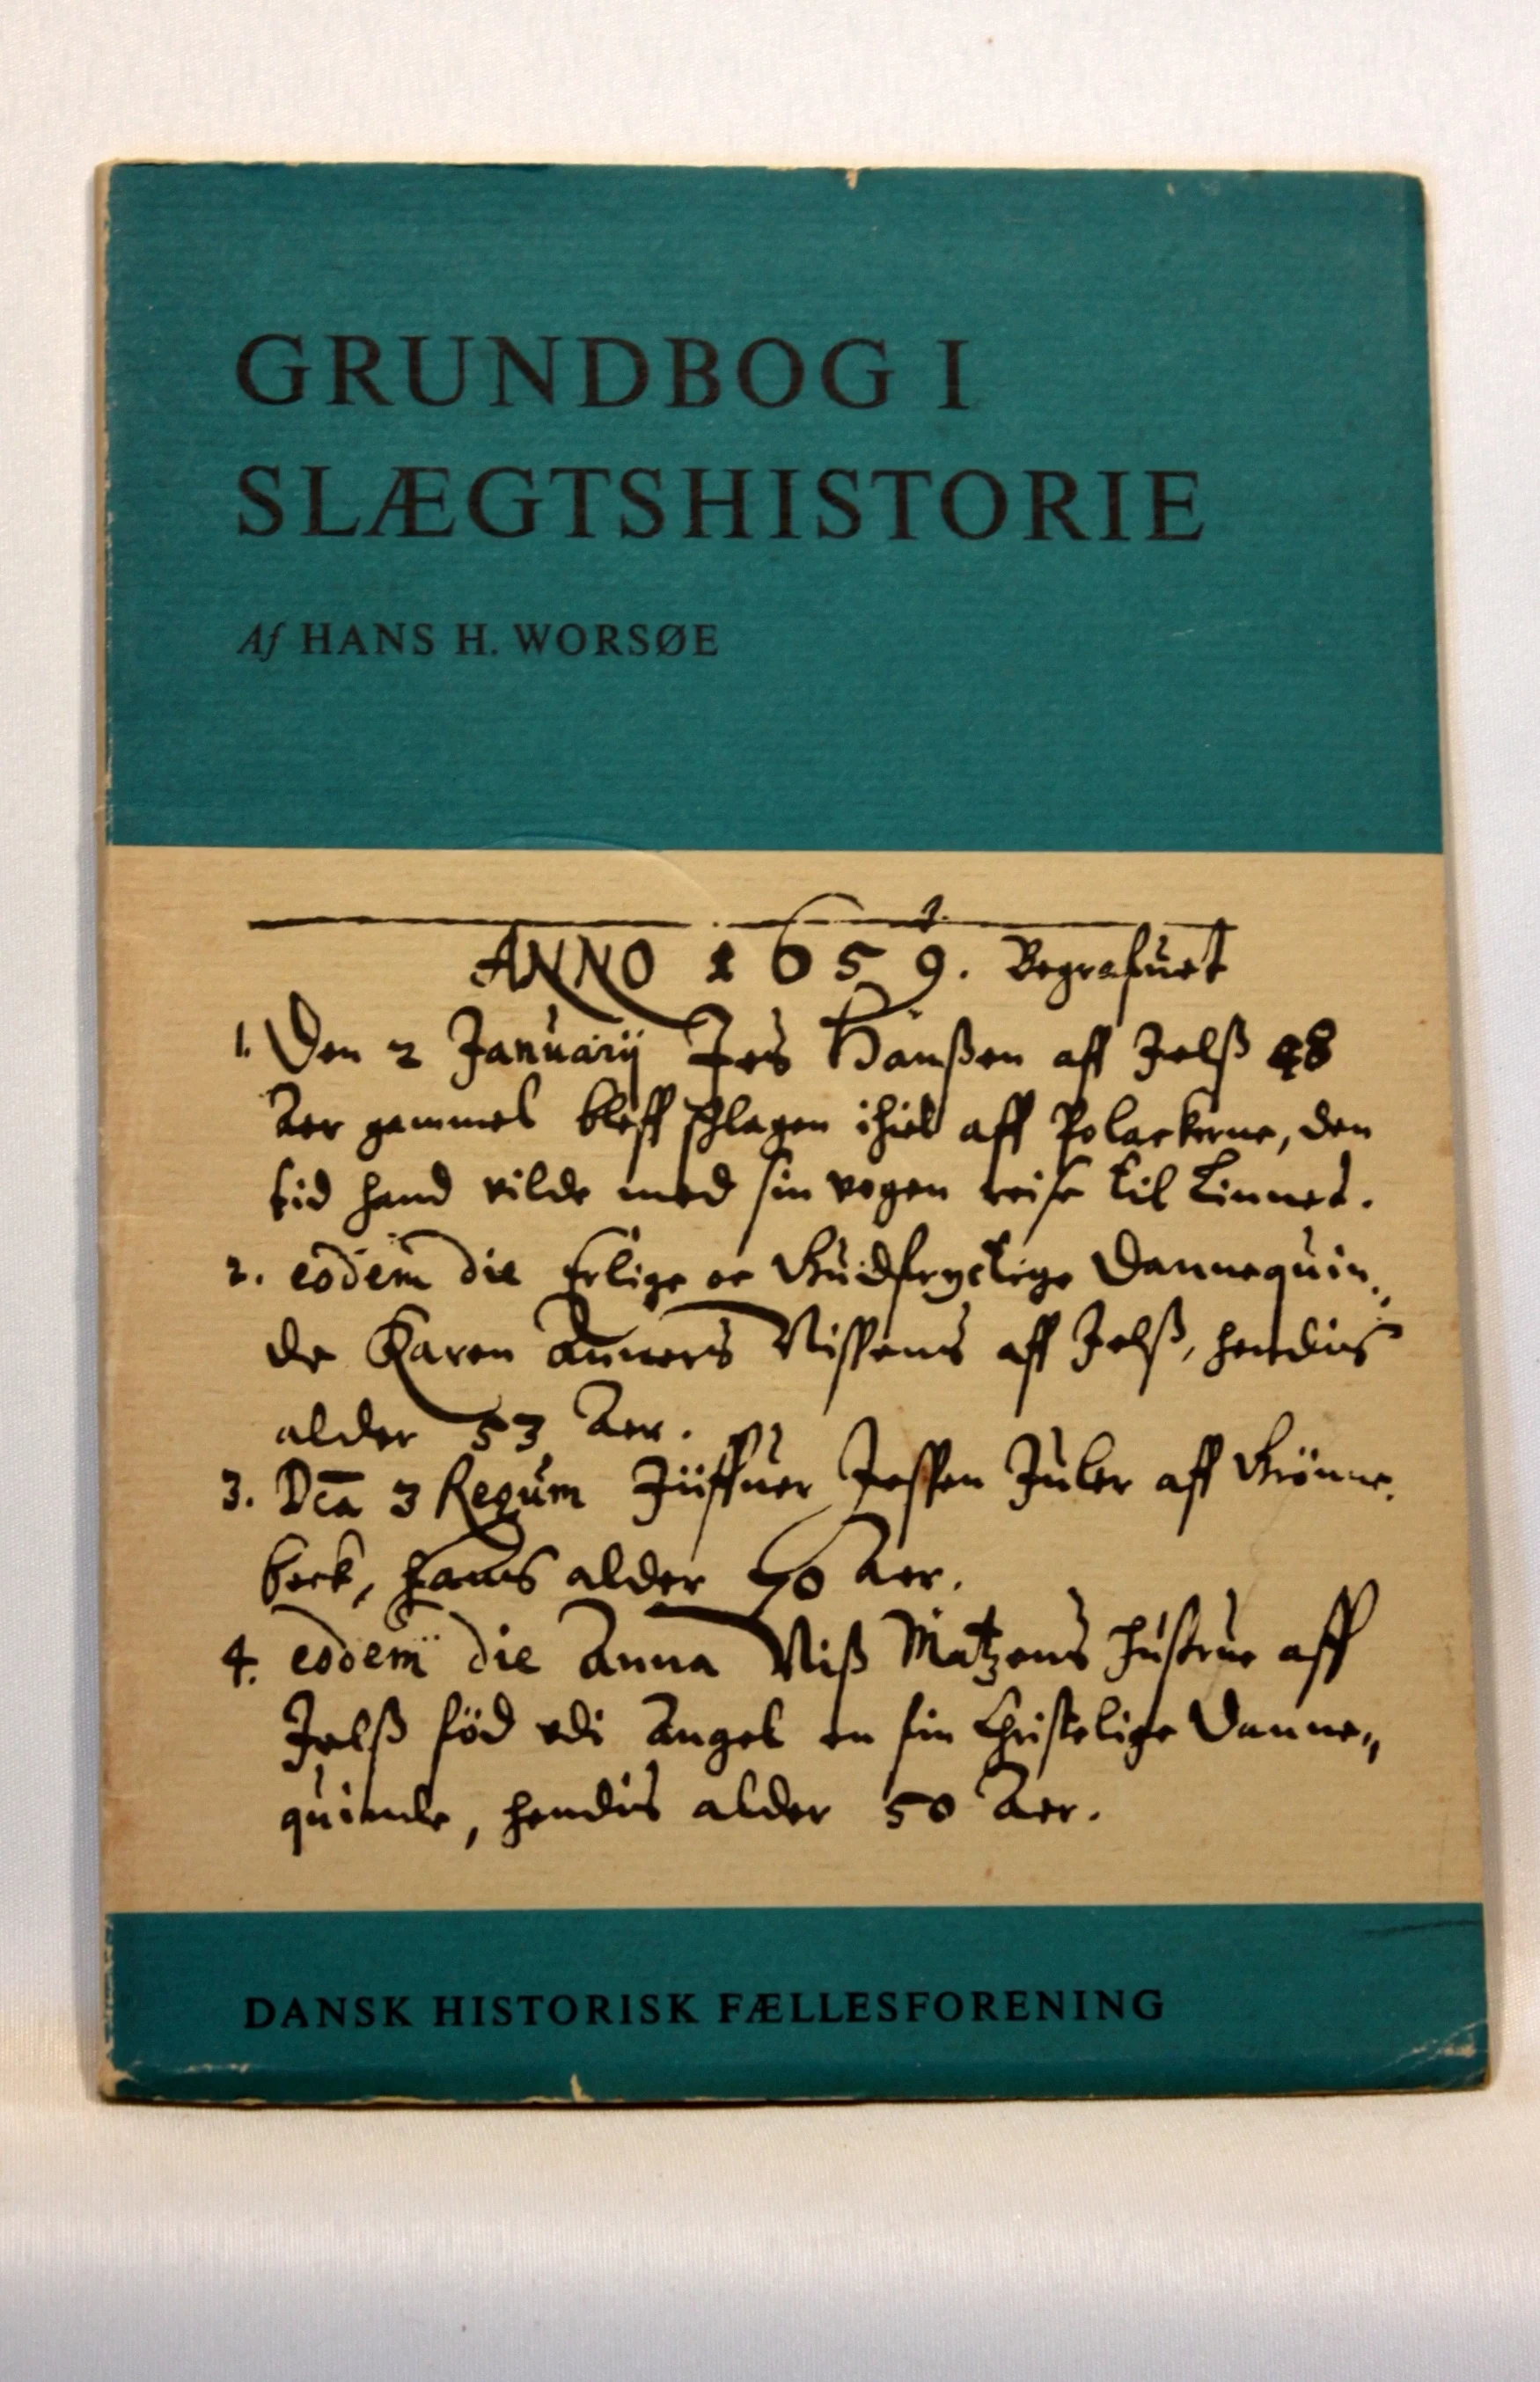 GRUNDBOG I
SLÆGTSHISTORIE
Af HANS H. WORSØE
ANNO 1659. Begrafuet
1. Den 2 Januarij Jes Hanßen aff Jelß 48
Aer gammel bleff schlagen ihiel aff Polackerne, den
tid hand vilde med sin vogen reise til Linnet.
2. eodem die Erlige oc Gudfryctige Dannequin„
de Karen Anners Nissens aff Jelß, hendis
alder 53 Aer.
3. Dca 3 Regum Jessen Juler aff Grönne„
beck, hans alder Aer.
4. eodem die Anna Niß Matzens hustrue aff
Jelß föd udi Angel en fin Christelige Danne„
quinde, hendis alder 50 Aer.
DANSK HISTORISK FÆLLESFORENING